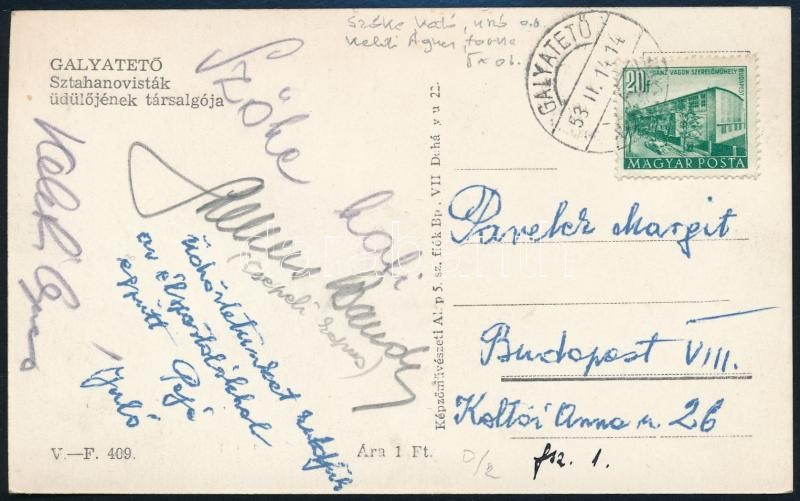 GALYATETŐ
Sztahanovisták
üdülőjének társalgója
Szőke Kató, úszó o.b.
Keleti Ágnes, torna
GALYATETŐ
53 II. 14 14
20f
GANZ VAGON SZERELŐMŰHELY
BUDAPEST
MAGYAR POSTA
Szőke Kati
Keleti Ágnes
(csepeli kapus)
üdvözletünket küldjük
az élsportolókkal
együtt
Gyuló
V.—F. 409.
Ára 1 Ft.
Képzőművészeti Alap 5. sz. fiók Bp. VII Dohány u 22.
Pavelek Margit
Budapest VIII.
Koltói Anna u. 26
fsz. 1.
D/2